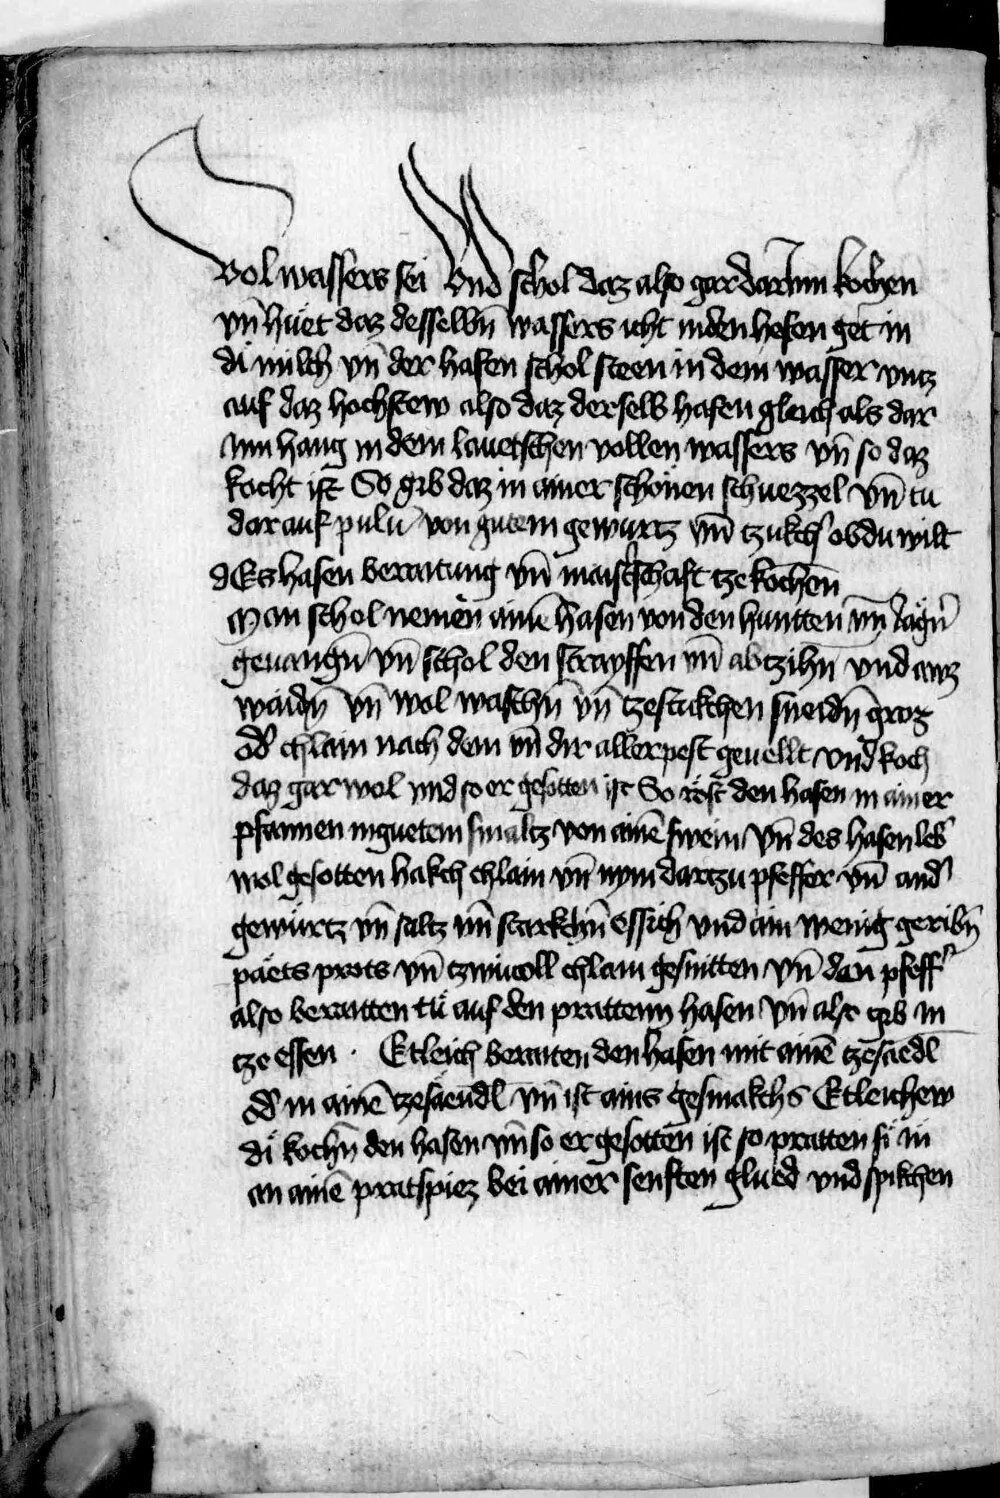 vol wassers sei Vnd schol daz also gar dar inn kochen
vn̄ hüet daz desselbn̄ wassers icht in den hefen get in
di milch vn̄ der hafen schol steen in dem wasser vntz
auf daz hochstew also daz derselb hafen gleich als dar
inn hang in dem lauetschen vollen wassers vn̄ so daz
kocht ist So gib daz in ainer schönen schuezzel vn̄ tü
dar auf pulu͛ von gutem gewurtz vn̄ tzukch͛ ob du wilt
dEs hasen beraitung vn̄ maist͛schaft tze kochen
Man schol nemen ainē hasen von den huntten vn̄ Iägn͛
geuangn̄ vn̄ schol den strayffen vn̄ abtzihn̄ vnd awz
waidn̄ vn̄ wol waschn̄ vn̄ tzestukchen sneidn̄ groz
od͛ chlain nach dem vn̄ dir allerpest geuellt vnd koch
daz gar wol vnd so er gesotten ist So röst den hasen in ainer
pfannen in guetem smaltz von ainē swein Vn̄ des hasen leb͛
wol gesotten hakch chlain vn̄ nym dartzu pfeffer vn̄ and͛
gewürtz vn̄ saltz vn̄ starkchn̄ essich vnd ain wenig geribn̄
päets prots vn̄ tzwiuoll chlain gesnitten Vn̄ den pfeff͛
also beraitten tü auf den prattenn hasen Vn̄ also gib in
tze essen · Etleich beraiten den hasen mit ainē tzesaedl
od͛ in ainē tzesaendl vn̄ ist ains gesmakchs Etleichew
di kochn̄ den hasen vn̄ so er gesotten ist so pratten si in
an ainē pratspiez bei ainer senften glued vnd spikchen